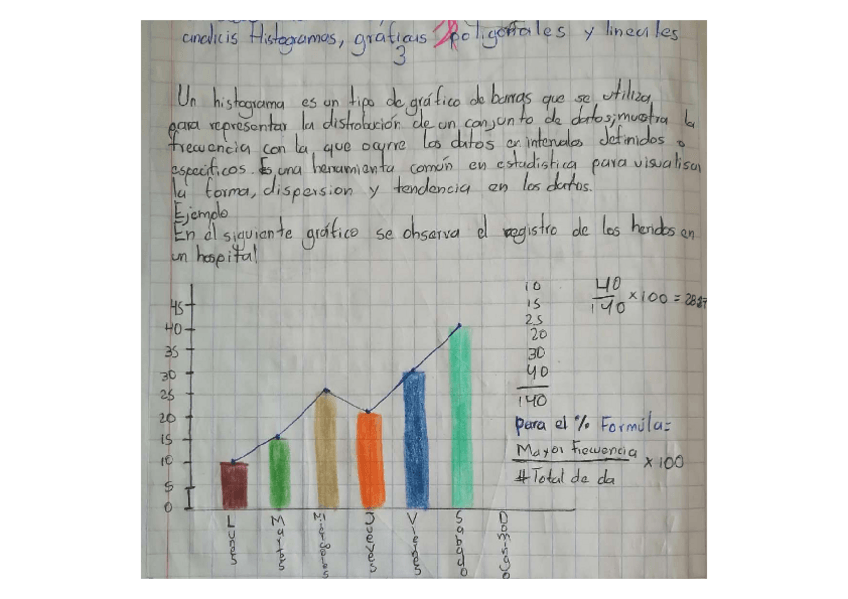 analicis Histogramas, gráficas poligonales y lineales
3
Un histograma es un tipo de gráfico de barras que se utiliza
para representar la distrobución de un conjunto de datos; muestra la
frecuencia con la que ocurre los datos en intervalos definidos o
especificos. Es una herramienta común en estadistica para visualisar
la forma, dispersion y tendencia en los datos.
Ejemplo
En el siguiente gráfico se observa el registro de los heridos en
un hospital
45
40
35
30
25
20
15
10
5
0
Lunes
Martes
Miercoles
Jueves
Viernes
Sabado
Domingo
10
15
25
20
30
40
140
40
140
x 100 = 28
para el % Formula=
Mayor frecuencia
# Total de da
x 100